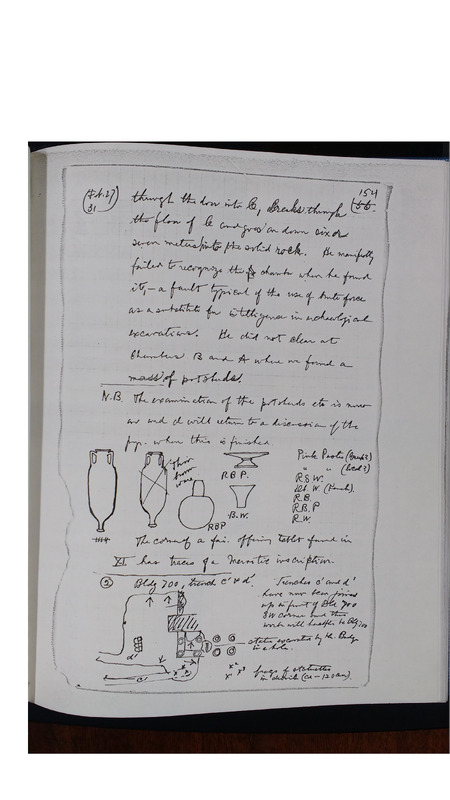 (Feb. 27)
31
154
through the door into C, breaks through
the floor of C and goes on down six or
seven meters into the solid rock. He manifestly
failed to recognize the chamber when he found
it, – a fault typical of the use of brute force
as a substitute for intelligence in archaeological
excavations. He did not clear out
Chambers B and A where we found a
mass of potsherds.
N.B. The examination of the potsherds etc is now
on and I will return to a discussion of the
when this is finished.
Thin
brown
ware
R B P.
B.W.
RBP
R.B.W.
R.B.
R.B.P
R.W.
The corner of a fai. offering tablet found in
XI has traces of a Meroitic inscription.
② Bldg 700, trench c' & d'
Trenches c' and d'
have now been joined
up in front of Bldg 700
SW corner and the
work will
in a hole.
frags of statuettes
in debris
d'
c'